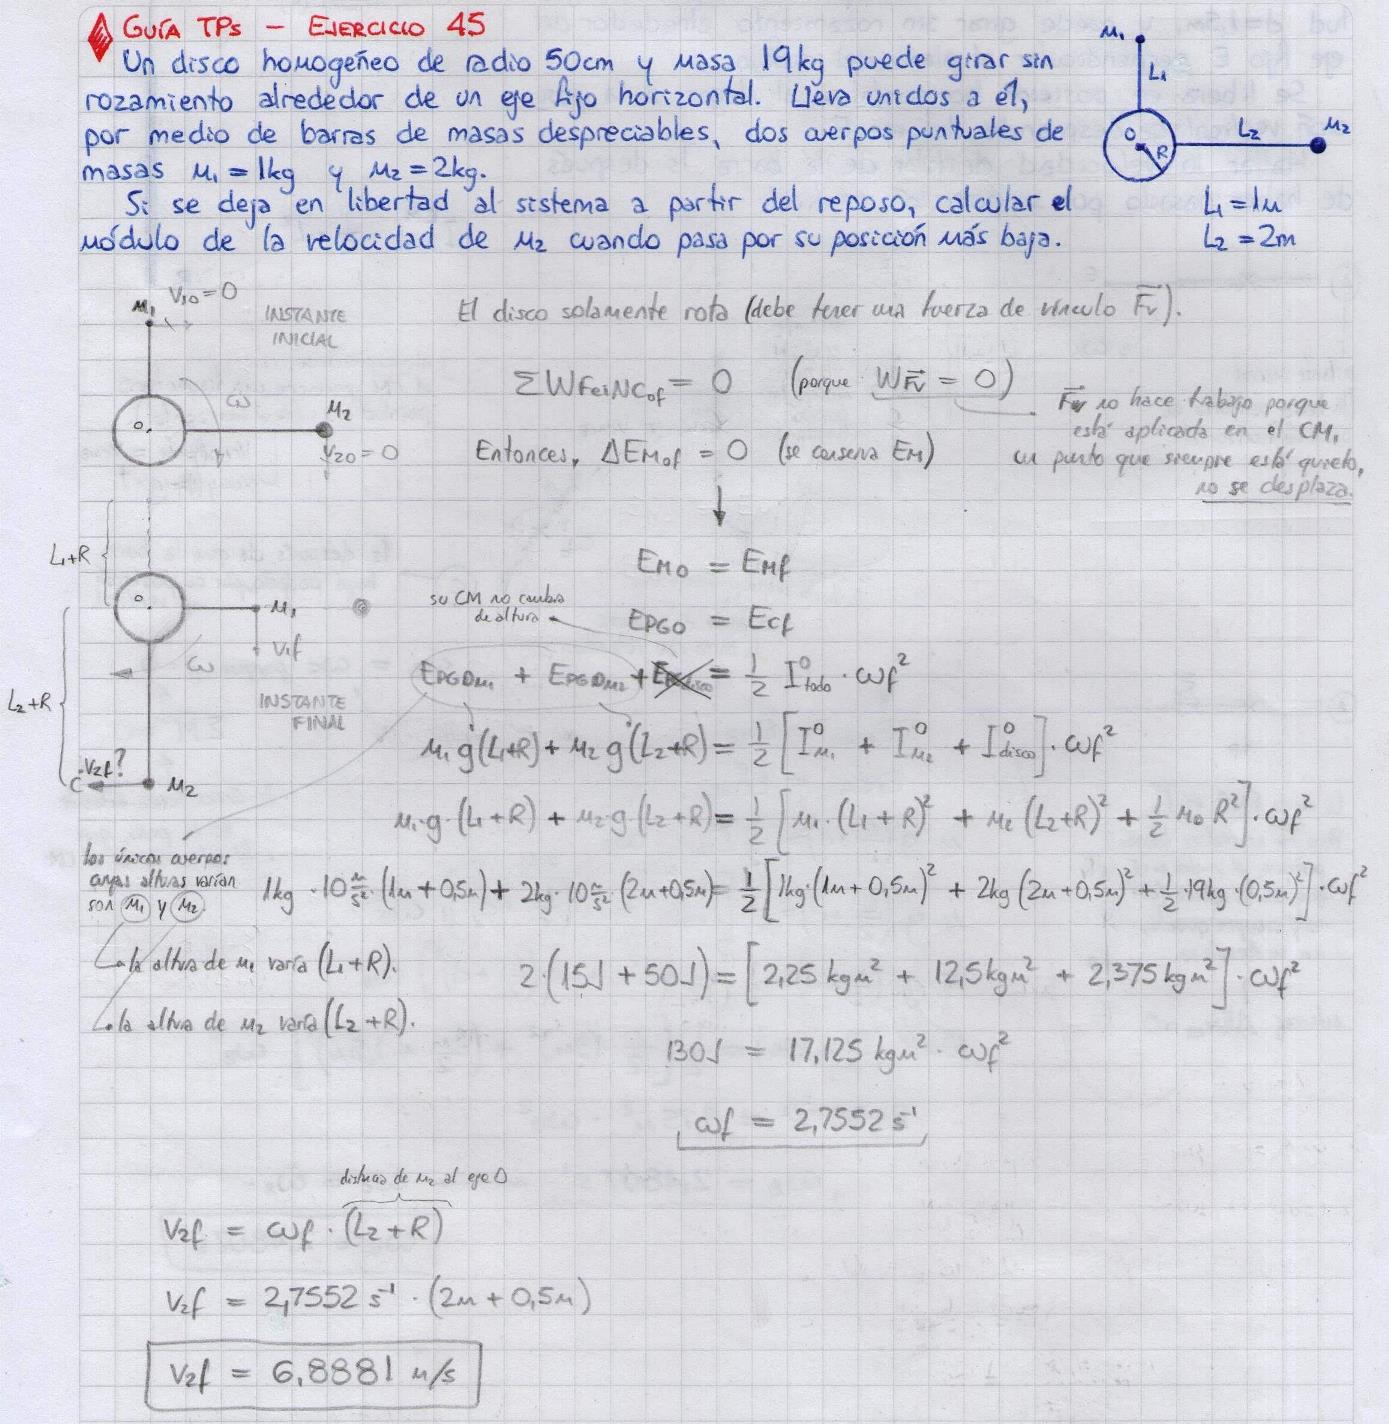 GUÍA TPs - EJERCICIO 45
Un disco homogéneo de radio 50cm y masa 19kg puede girar sin
rozamiento alrededor de un eje fijo horizontal. Lleva unidos a él,
por medio de barras de masas despreciables, dos cuerpos puntuales de
masas M₁ = 1kg y M₂ = 2kg.
Si se deja en libertad al sistema a partir del reposo, calcular el
módulo de la velocidad de M₂ cuando pasa por su posición más baja.
M₁
L₁
O
R
L₂
M₂
L₁ = 1m
L₂ = 2m
M₁ V₁₀ = 0
INSTANTE
INICIAL
ω
O
M₂
V₂₀ = 0
El disco solamente rota (debe tener una fuerza de vínculo Fv).
ΣW FeiNC₀f = 0 (porque W Fv = 0)
Fv no hace trabajo porque
está aplicada en el CM,
un punto que siempre está quieto,
no se desplaza.
Entonces, ΔEM₀f = 0 (se conserva EM)
↓
L₁+R
O
M₁
V₁f
ω
L₂+R
INSTANTE
FINAL
V₂f?
M₂
EM₀ = EMf
su CM no cambia
de altura
EPG₀ = Ecf
EPG₀M₁ + EPG₀M₂ + = 1/2 I⁰todo · ωf²
M₁ g (L₁+R) + M₂ g (L₂+R) = 1/2 [I⁰M₁ + I⁰M₂ + I⁰disco] · ωf²
M₁·g·(L₁+R) + M₂·g·(L₂+R) = 1/2 [M₁·(L₁+R)² + M₂(L₂+R)² + 1/2 MD R²] · ωf²
los únicos cuerpos
cuyas alturas varían
son M₁ y M₂.
1kg · 10 m/s² · (1m + 0,5m) + 2kg · 10 m/s² · (2m+0,5m) = 1/2 [1kg·(1m+0,5m)² + 2kg(2m+0,5m)² + 1/2·19kg·(0,5m)²] · ωf²
la altura de M₁ varía (L₁+R).
2·(15J + 50J) = [2,25 kgm² + 12,5 kgm² + 2,375 kgm²] · ωf²
la altura de M₂ varía (L₂+R).
130J = 17,125 kgm² · ωf²
ωf = 2,7552 s⁻¹
distancia de M₂ al eje O
V₂f = ωf · (L₂+R)
V₂f = 2,7552 s⁻¹ · (2m + 0,5m)
V₂f = 6,8881 m/s